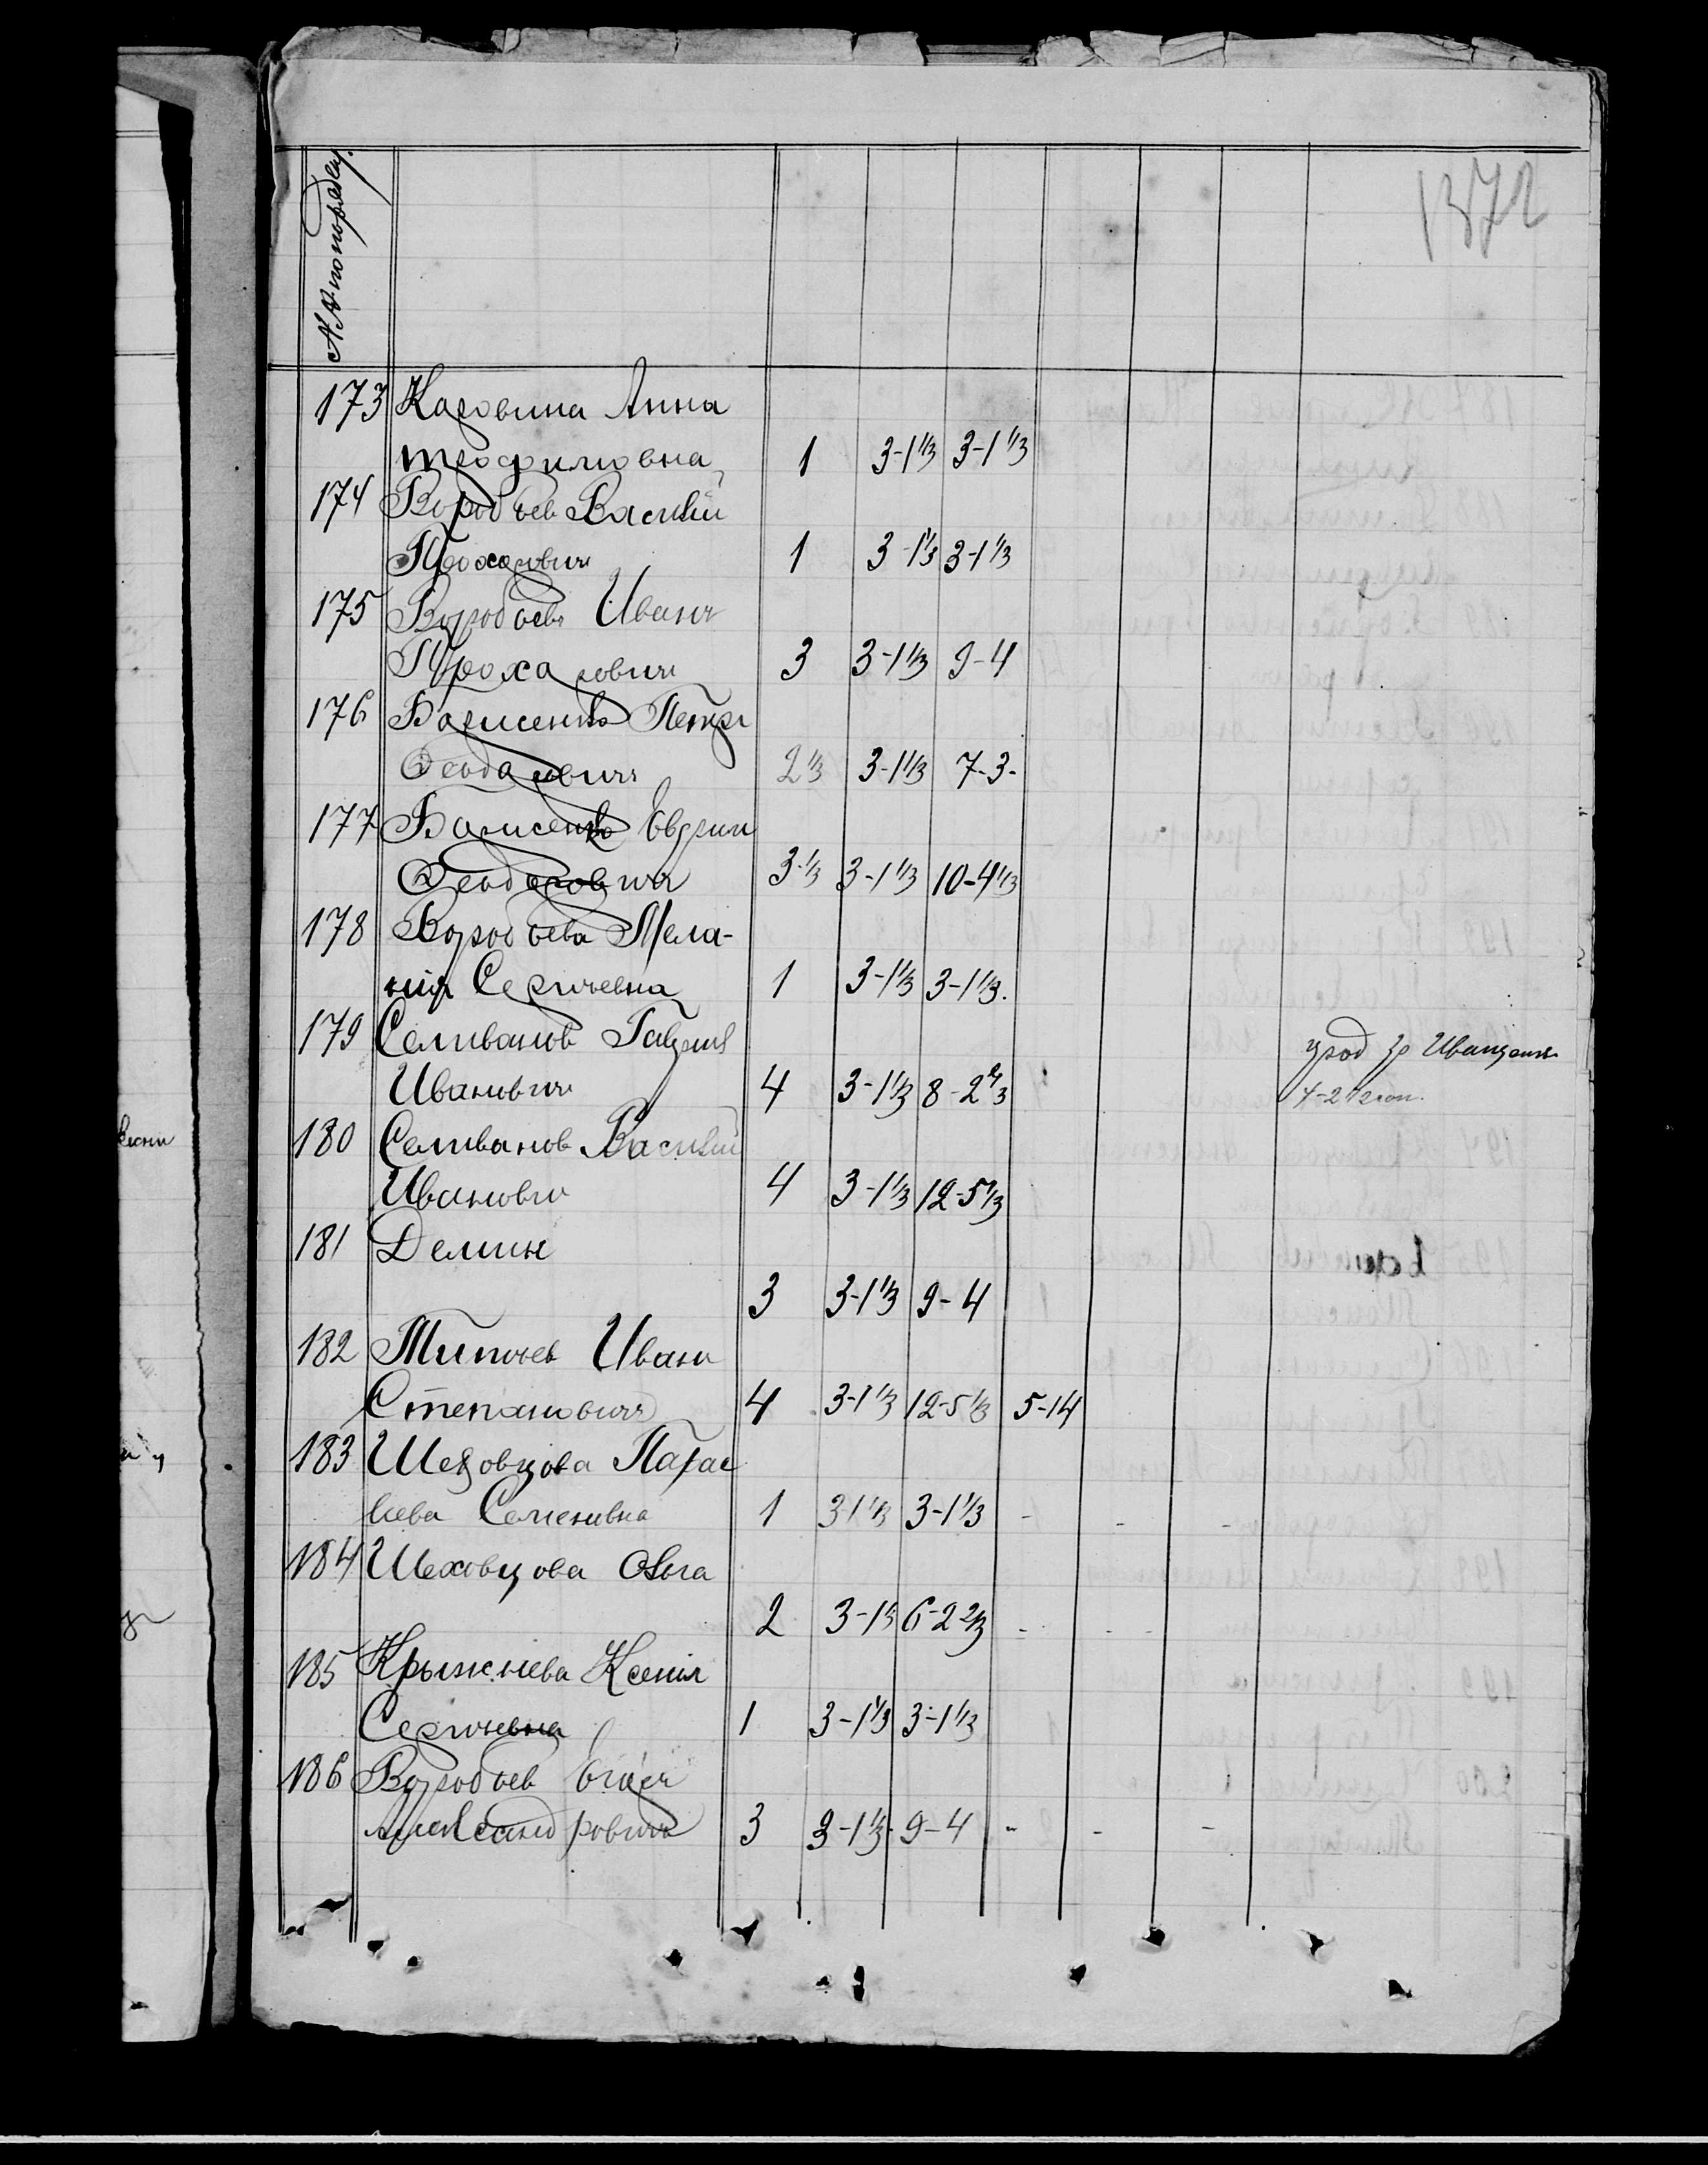 1372
№№ по порядку.
173 Каровина Анна
Теофиловна 1 3-1 1/3 3-1 1/3
174 Воробьев Василий
Прохорович 1 3-1 1/3 3-1 1/3
175 Воробьевъ Иванъ
Прохарович 3 3-1 1/3 9-4
176 Барисенко Петръ
Феодаровичъ 2 1/3 3-1 1/3 7-3-
177 Барисенко
Феодаровичъ 3-1/3 3-1 1/3 10-4 1/3
178 Воробьева Мела-
нія Сергиевна 1 3-1 1/3 3-1 1/3.
179 Селиванов
Ивановичъ 4 3-1 1/3 8-2 2/3
4-2 1/2
180 Селиванов Василий
Иванович 4 3-1 1/3 12-5 1/3
181 Демин
3 3-1 1/3 9-4
182 Иван
Степановичъ 4 3-1 1/3 12-5 1/3 5-14
183 Шеховцова Парас
кева Семеновна 1 3-1 1/3 3-1 1/3 - - -
184 Шеховцова Ольга
2 3-1 1/3 6-2 2/3 - - -
185 Крыжнева Ксенія
Сергиевна 1 3-1 1/3 3-1 1/3
186 Воробьев
Александровичъ 3 3-1 1/3 9-4 - - -